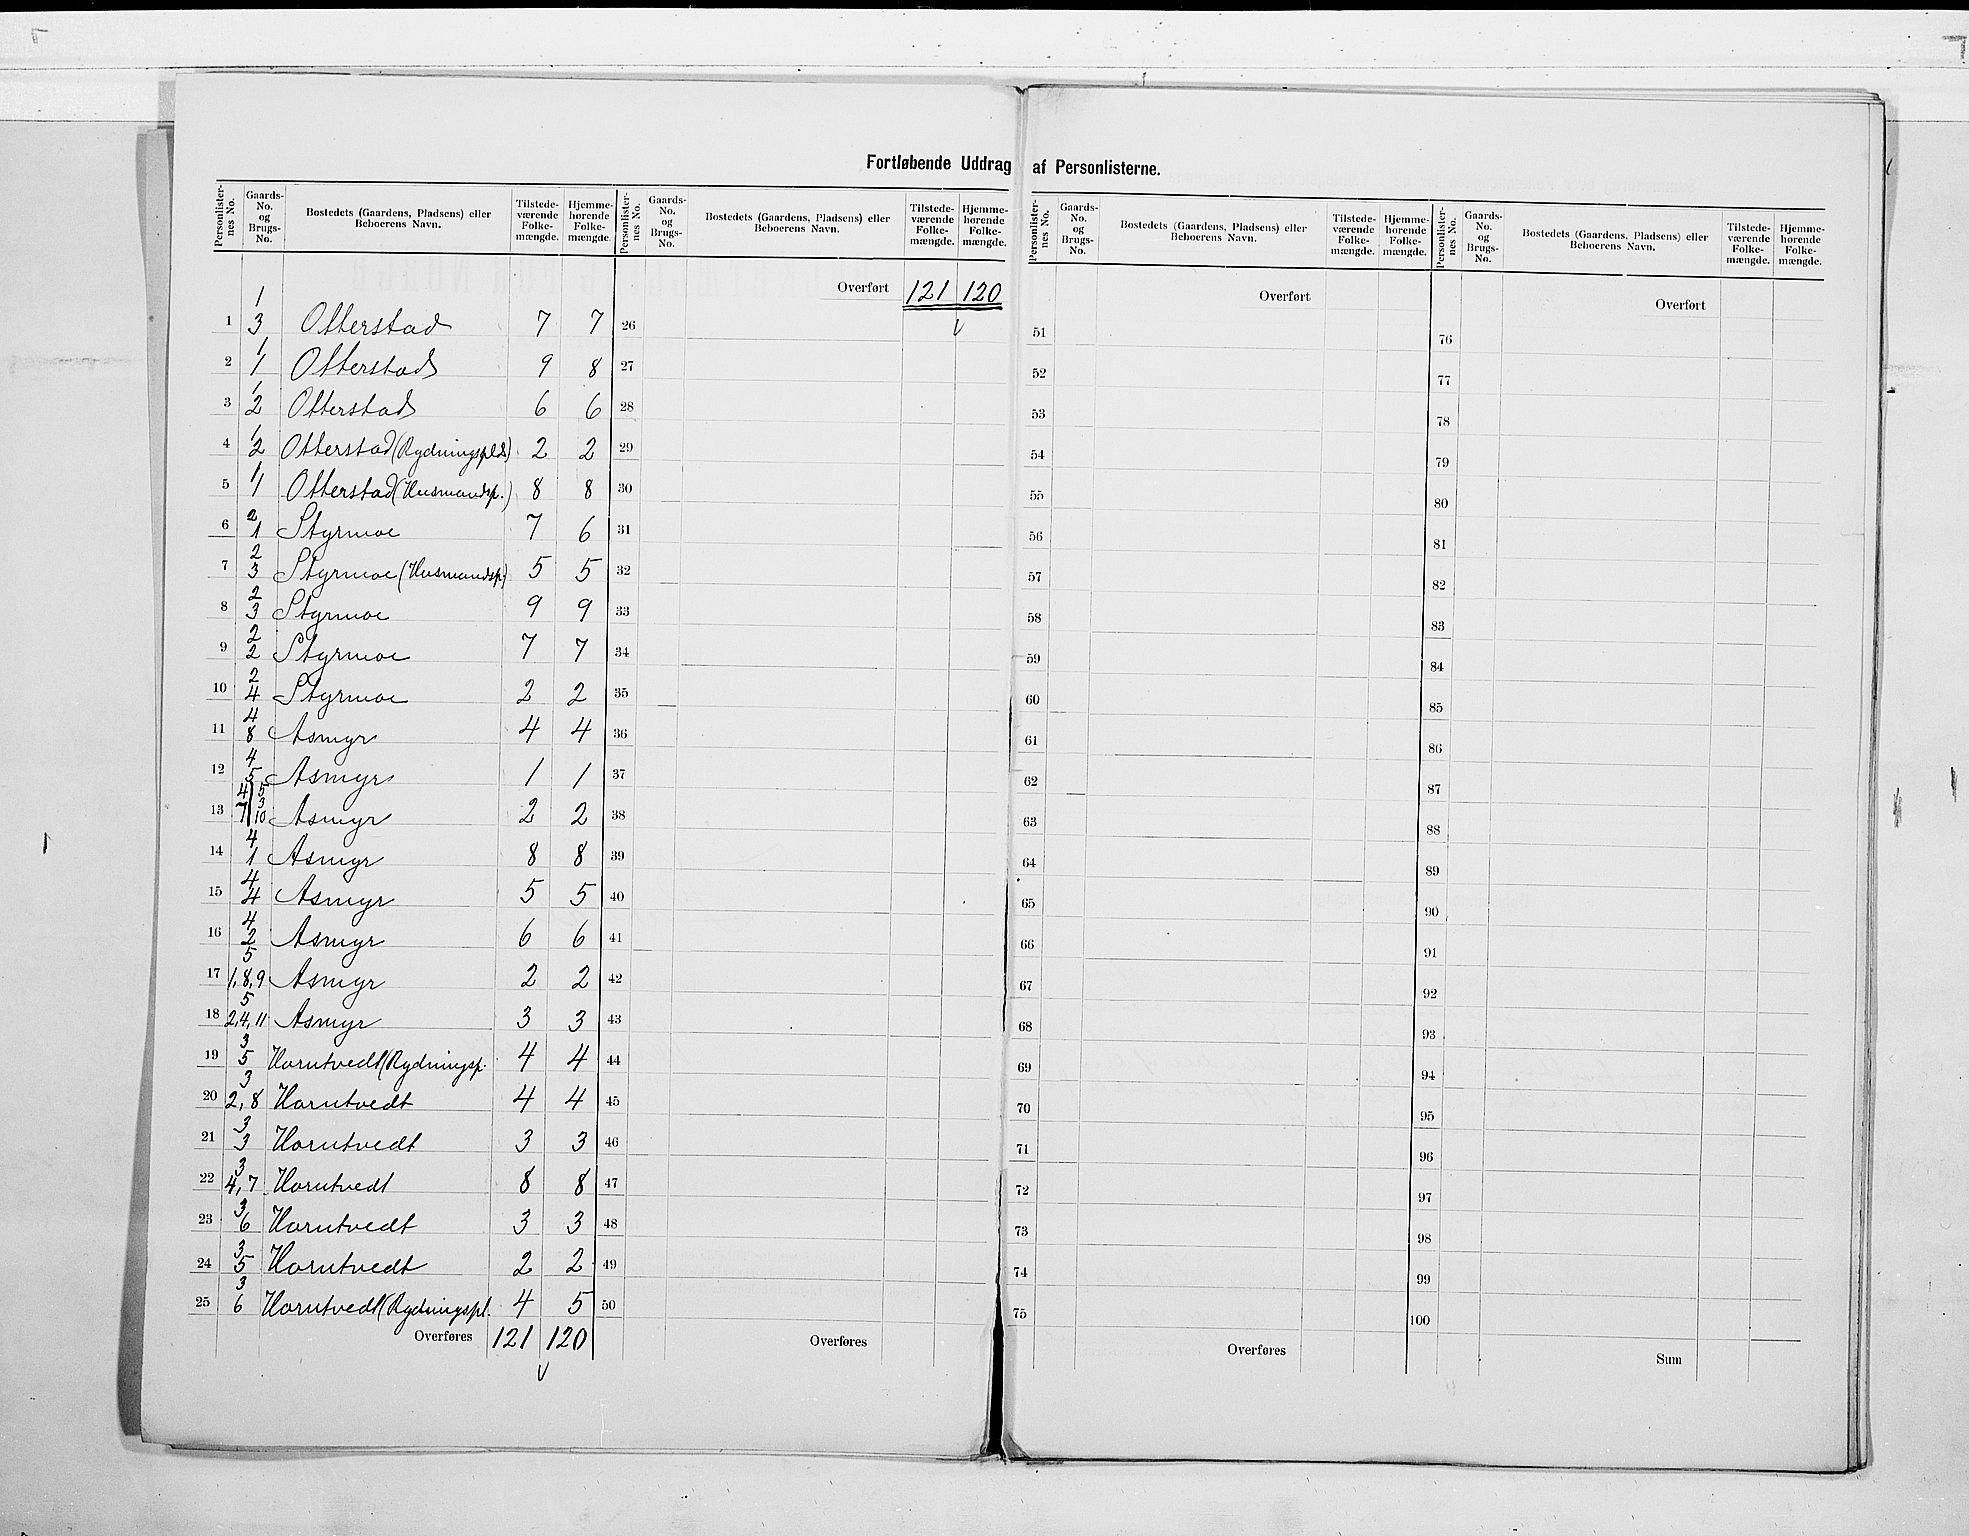 Fortløbende Uddrag af Personlisterne.
Personlister-nes No. Gaards-No. og Brugs-No. Bostedets (Gaardens, Pladsens) eller Beboerens Navn. Tilstede-værende Folke-mængde. Hjemme-hørende Folke-mængde.
1 1/3 Otterstad 7 7
2 1/1 Otterstad 9 8
3 1/2 Otterstad 6 6
4 1/2 Otterstad (Rydningspld) 2 2
5 1/1 Otterstad (Husmandsp.) 8 8
6 2/1 Styrmoe 7 6
7 2/3 Styrmoe (Husmandsp) 5 5
8 2/3 Styrmoe 9 9
9 2/2 Styrmoe 7 7
10 2/4 Styrmoe 2 2
11 4/8 Asmyr 4 4
12 4/5 Asmyr 1 1
13 4/7 5/3 10 Asmyr 2 2
14 4/1 Asmyr 8 8
15 4/4 Asmyr 5 5
16 4/2 Asmyr 6 6
17 5/1,8,9 Asmyr 2 2
18 5/2,4,11 Asmyr 3 3
19 3/5 Horntvedt (Rydningsp. 4 4
20 3/2,8 Horntvedt 4 4
21 3/3 Horntvedt 3 3
22 3/4,7 Horntvedt 8 8
23 3/6 Horntvedt 3 3
24 3/5 Horntvedt 2 2
25 3/6 Horntvedt (Rydningspl. 4 5
Overføres 121 120
Personlister-nes No. Gaards-No. og Brugs-No. Bostedets (Gaardens, Pladsens) eller Beboerens Navn. Tilstede-værende Folke-mængde. Hjemme-hørende Folke-mængde.
Overført 121 120
26
27
28
29
30
31
32
33
34
35
36
37
38
39
40
41
42
43
44
45
46
47
48
49
50
Overføres
Personlister-nes No. Gaards-No. og Brugs-No. Bostedets (Gaardens, Pladsens) eller Beboerens Navn. Tilstede-værende Folke-mængde. Hjemme-hørende Folke-mængde.
Overført
51
52
53
54
55
56
57
58
59
60
61
62
63
64
65
66
67
68
69
70
71
72
73
74
75
Overføres
Personlister-nes No. Gaards-No. og Brugs-No. Bostedets (Gaardens, Pladsens) eller Beboerens Navn. Tilstede-værende Folke-mængde. Hjemme-hørende Folke-mængde.
Overført
76
77
78
79
80
81
82
83
84
85
86
87
88
89
90
91
92
93
94
95
96
97
98
99
100
Sum